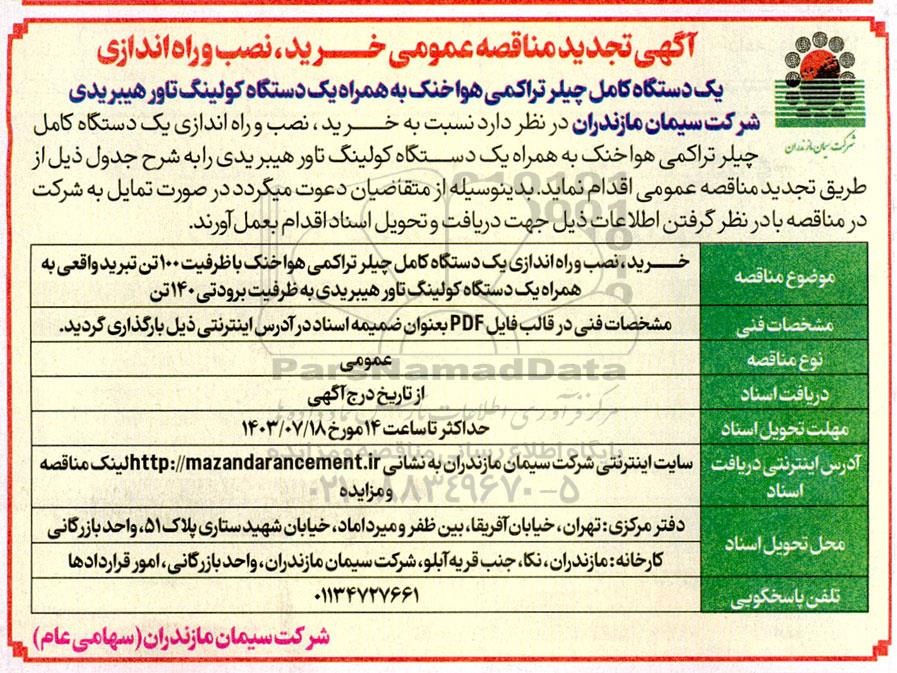 آگهی تجدید مناقصه عمومی خرید، نصب و راه اندازی
یک دستگاه کامل چیلر تراکمی هوا خنک به همراه یک دستگاه کولینگ تاور هیبریدی
شرکت سیمان مازندران در نظر دارد نسبت به خرید، نصب و راه اندازی یک دستگاه کامل
شرکت سیمان مازندران
چیلر تراکمی هوا خنک به همراه یک دستگاه کولینگ تاور هیبریدی را به شرح جدول ذیل از
طریق تجدید مناقصه عمومی اقدام نماید. بدینوسیله از متقاضیان دعوت میگردد در صورت تمایل به شرکت
در مناقصه با در نظر گرفتن اطلاعات ذیل جهت دریافت و تحویل اسناد اقدام بعمل آورند.
موضوع مناقصه
خرید، نصب و راه اندازی یک دستگاه کامل چیلر تراکمی هوا خنک با ظرفیت ۱۰۰ تن تبرید واقعی به
همراه یک دستگاه کولینگ تاور هیبریدی به ظرفیت برودتی ۱۴۰ تن
مشخصات فنی
مشخصات فنی در قالب فایل PDF بعنوان ضمیمه اسناد در آدرس اینترنتی ذیل بارگذاری گردید.
نوع مناقصه
عمومی
ParsNamadData
دریافت اسناد
از تاریخ درج آگهی
مهلت تحویل اسناد
حداکثر تا ساعت ۱۴ مورخ ۱۴۰۳/۰۷/۱۸
پایگاه اطلاع رسانی مناقصه و مزایده
آدرس اینترنتی دریافت
اسناد
سایت اینترنتی شرکت سیمان مازندران به نشانی http://mazandarancement.ir لینک مناقصه
و مزایده
۰۲۱-۸۸۳۴۹۶۷۰-۵
محل تحویل اسناد
دفتر مرکزی: تهران، خیابان آفریقا، بین ظفر و میرداماد، خیابان شهید ستاری پلاک ۵۱، واحد بازرگانی
کارخانه: مازندران، نکا، جنب قریه آبلو، شرکت سیمان مازندران، واحد بازرگانی، امور قراردادها
تلفن پاسخگویی
۰۱۱۳۴۷۲۷۶۶۱
شرکت سیمان مازندران (سهامی عام)